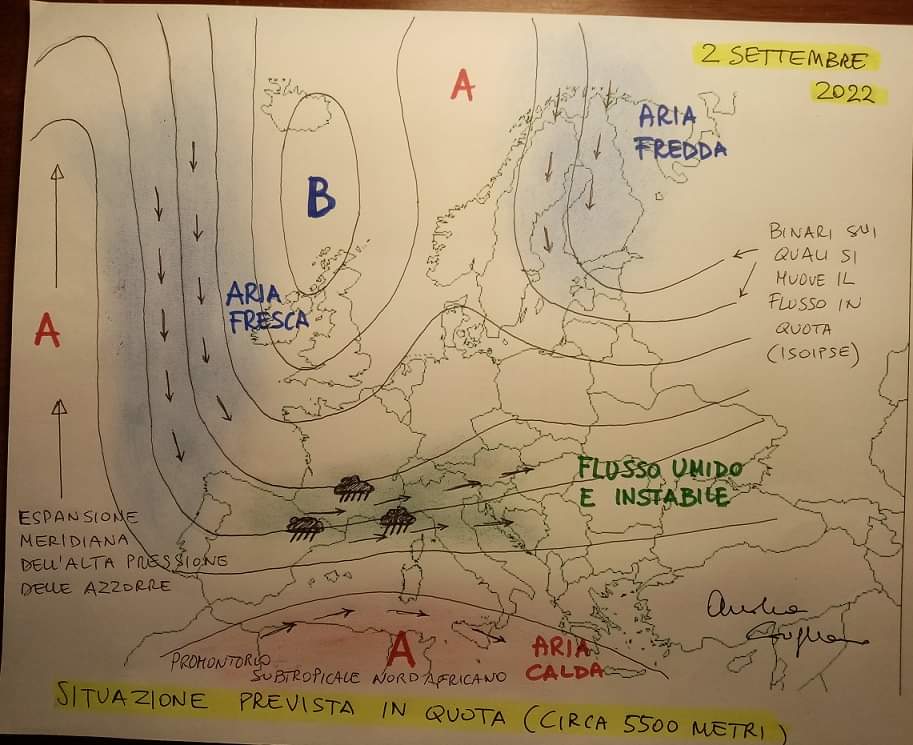 2 SETTEMBRE
2022
A
ARIA
FREDDA
B
BINARI SUI
QUALI SI
MUOVE IL
FLUSSO IN
QUOTA
(ISOIPSE)
ARIA
FRESCA
A
FLUSSO UMIDO
E INSTABILE
ESPANSIONE
MERIDIANA
DELL'ALTA PRESSIONE
DELLE AZZORRE
A
ARIA
CALDA
PROMONTORIO
SUBTROPICALE NORD AFRICANO
SITUAZIONE PREVISTA IN QUOTA (CIRCA 5500 METRI)